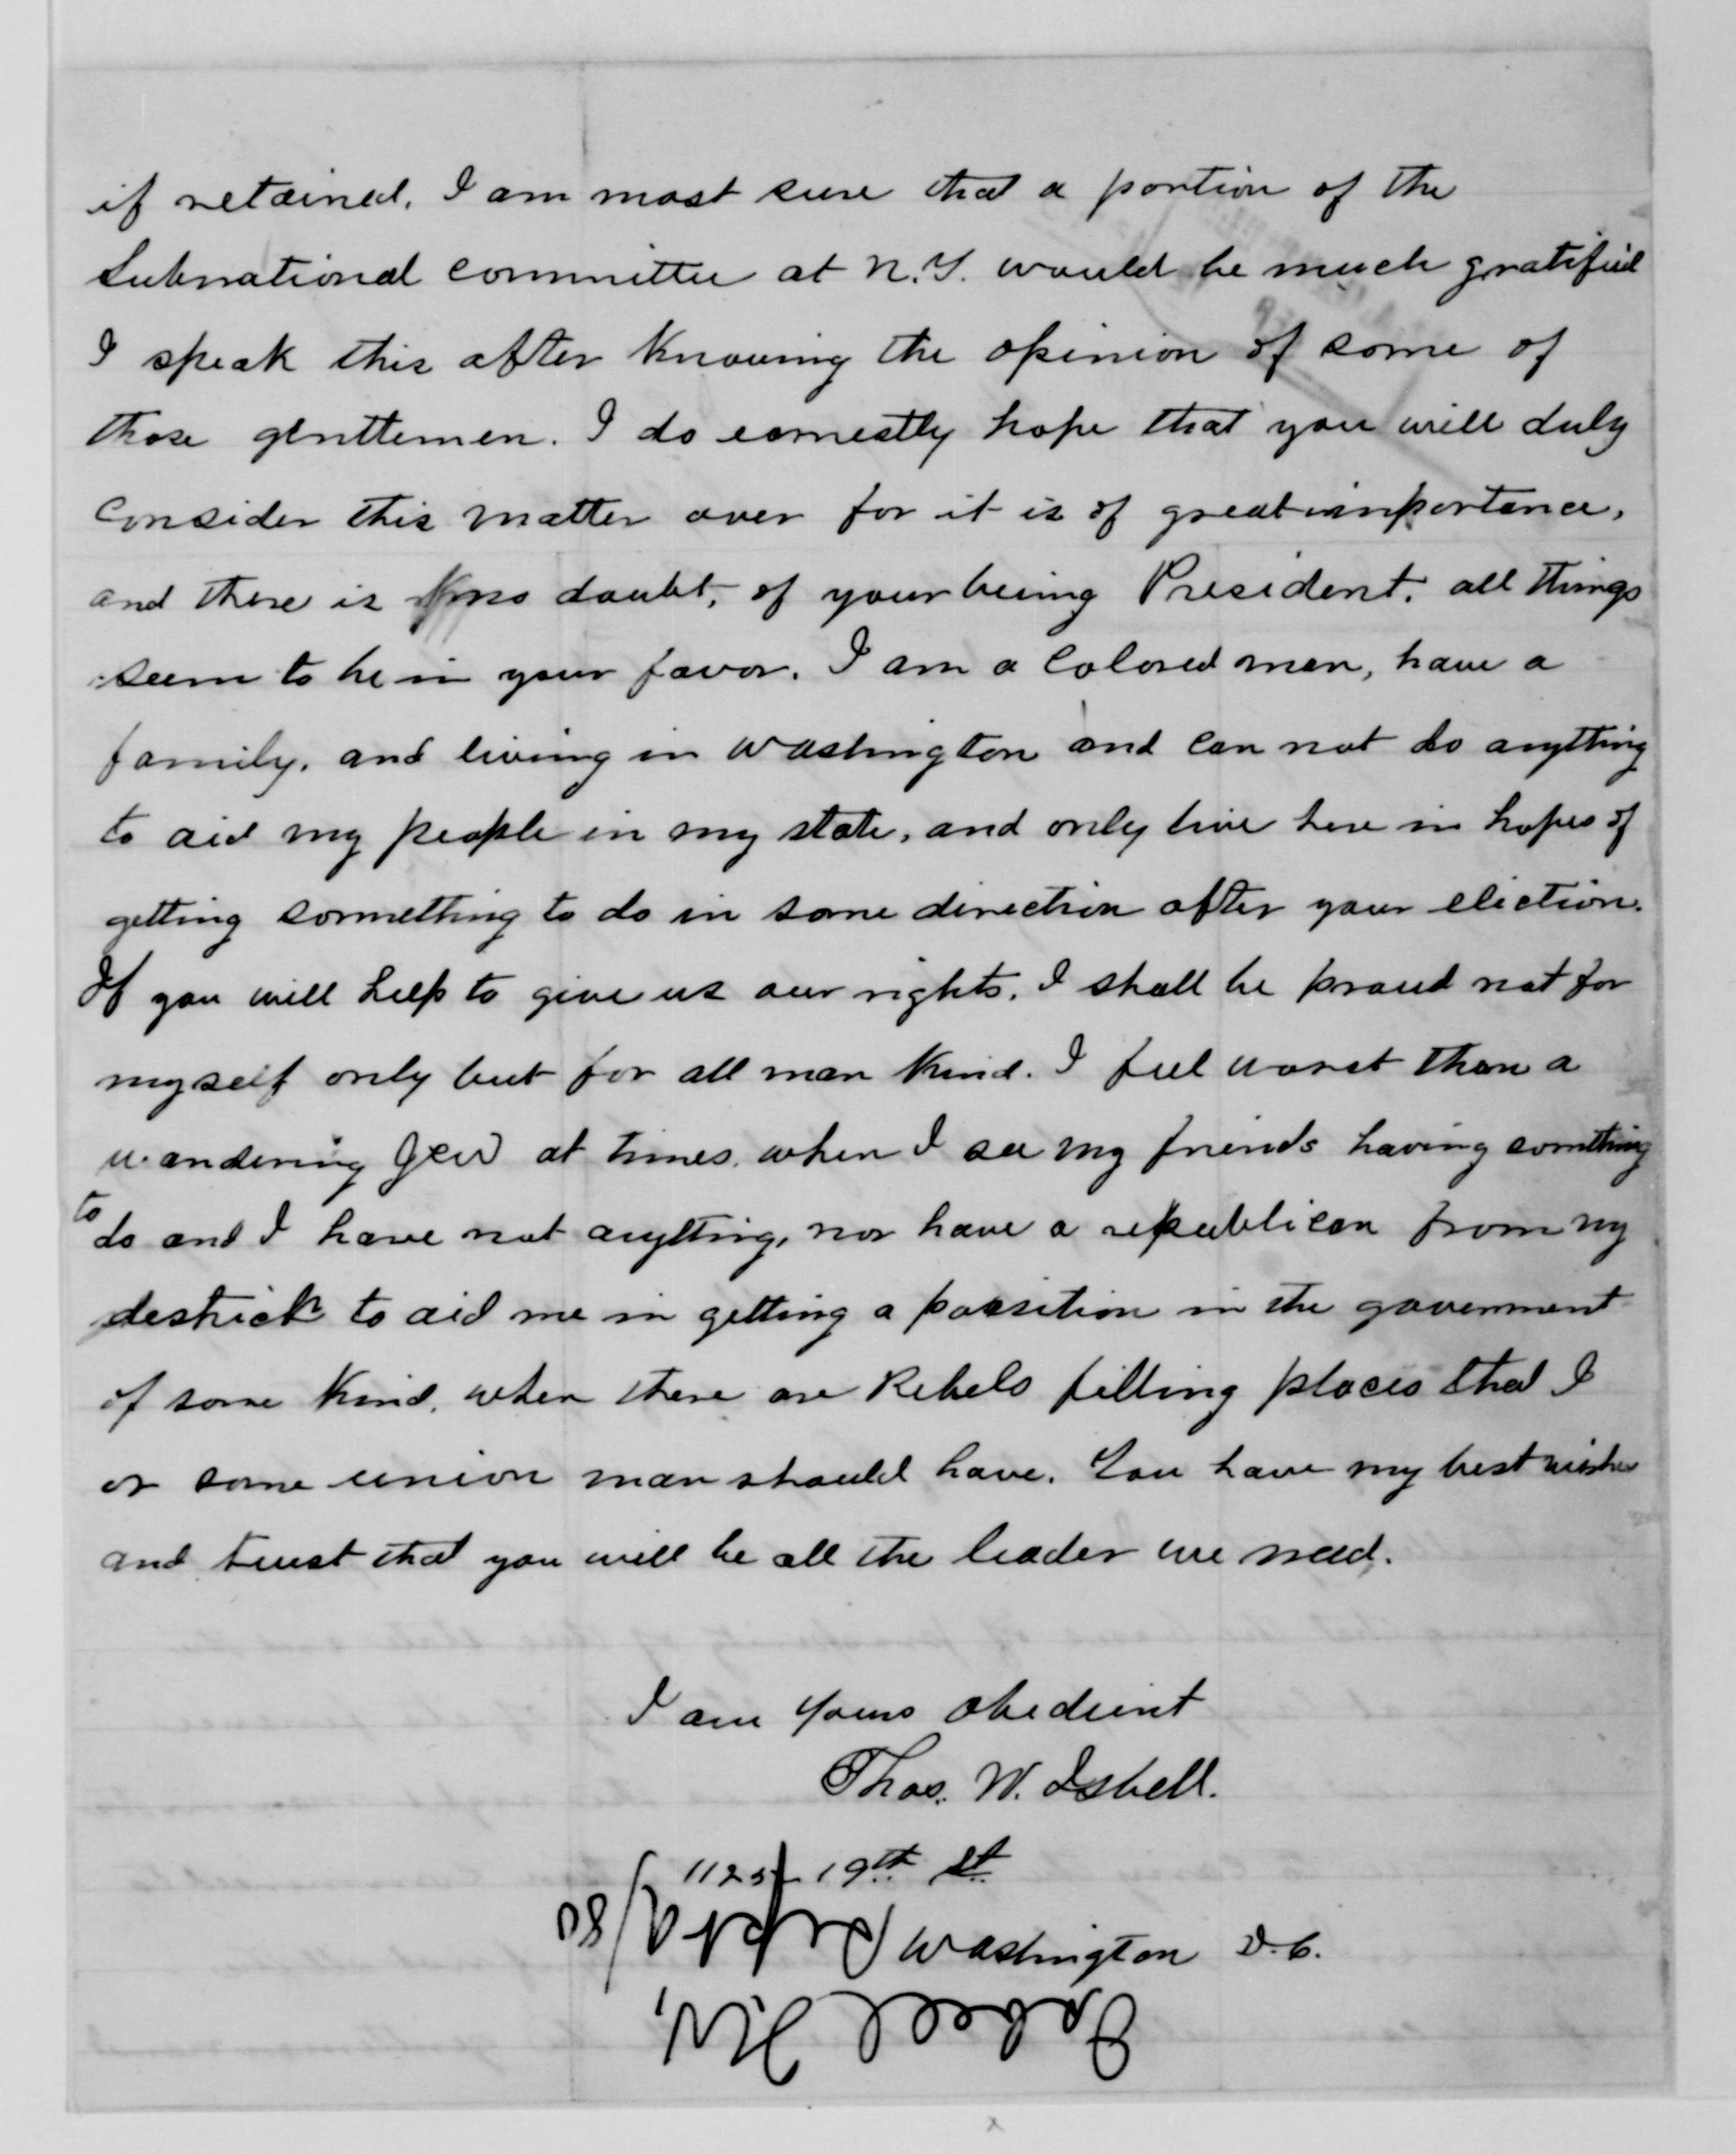 if retained, I am most sure that a portion of the
Subnational committee at N.Y. would be much gratified
I speak this after knowing the opinion of some of
those glenttemen. I do earnestly hope that you will duly
Consider this matter over for it is of great importance,
and there is no doubt, of your being President. all things
seem to be in your favor. I am a Colored man, have a
family, and living in Washington and can not do anything
to aid my people in my state, and only live here in hopes of
getting sommething to do in some direction after your eliction.
If you will help to give us our rights, I shall be proud not for
myself only but for all man kind. I feel worst than a
wandering Jew at times, when I see my friends having something
to
do and I have not anything, nor have a republican from my
destrict to aid me in getting a possition in the government
of some kind, when there are Rebels filling places that I
or some union man should have. You have my best wishes
and trust that you will be all the leader we need.
I am Yours obedient
Thos. W. Isbell.
1125 19th St
Washington D.C.
Isbell T.W.
/80